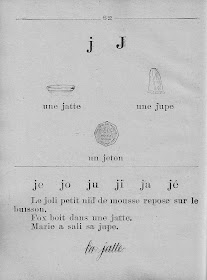 j J
une jatte
une jupe
un jeton
je jo ju ji ja jé
Le joli petit nid de mousse repose sur le
buisson.
Fox boit dans une jatte.
Marie a sali sa jupe.
la jatte